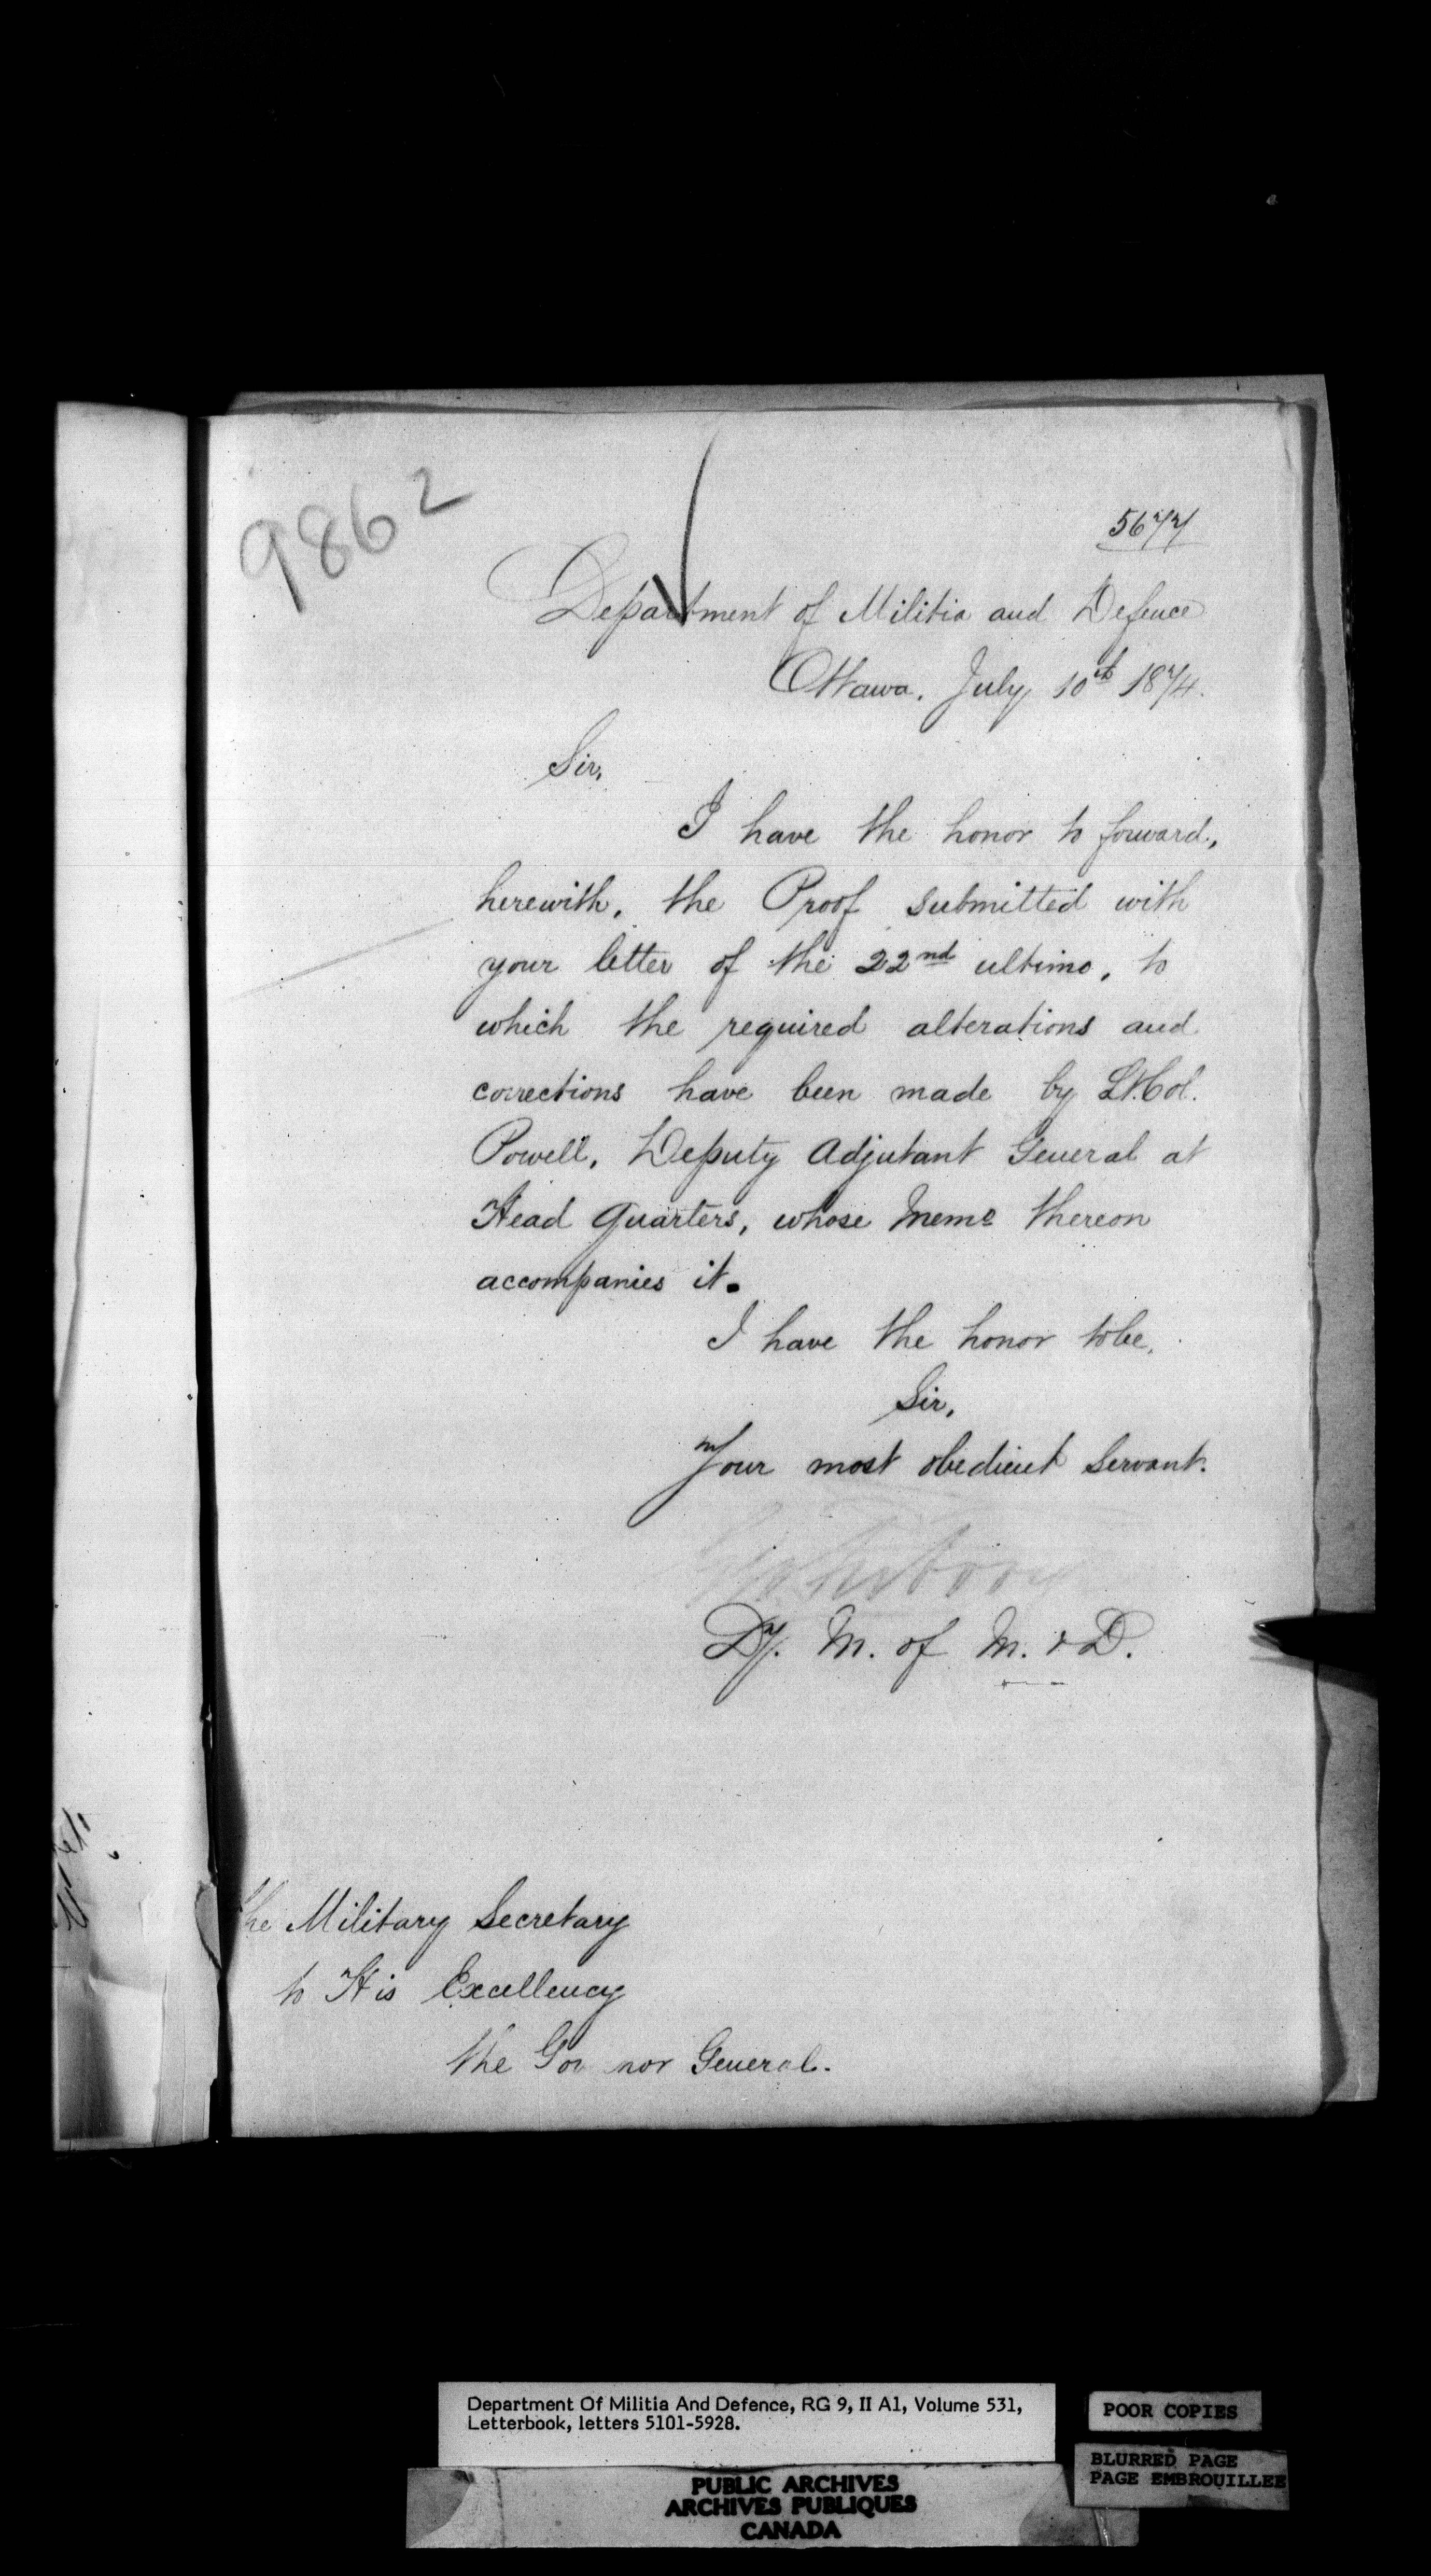 9862
5677
Department of Militia and Defence
Ottawa. July 10th 1874.
Sir,
I have the honor to forward,
herewith, the Proof submitted with
your letter of the 22nd ultimo, to
which the required alterations and
corrections have been made by Lt. Col.
Powell, Deputy Adjutant General at
Head Quarters, whose Memo thereon
accompanies it.
I have the honor to be,
Sir,
Your most obedient Servant.
Dy. M. of M. & D.
The Military Secretary
to His Excellency
the Go nor General.
Department Of Militia And Defence, RG 9, II A1, Volume 531,
Letterbook, letters 5101-5928.
POOR COPIES
BLURRED PAGE
PAGE EMBROUILLEE
PUBLIC ARCHIVES
ARCHIVES PUBLIQUES
CANADA